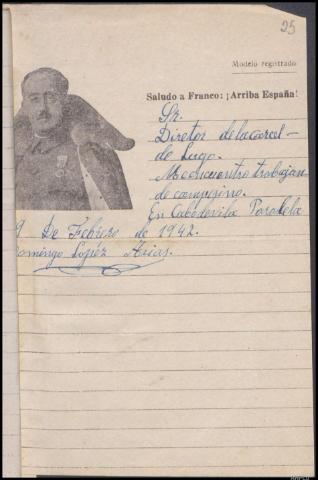 25
Modelo registrado
Saludo a Franco: ¡Arriba España!
Sr.
Diretor de la carcel
de Lugo.
Me encuentro trabajan
de campesino.
En Cabodevila Paradela
9 De Febrero de 1942.
omingo Lopéz Arias.